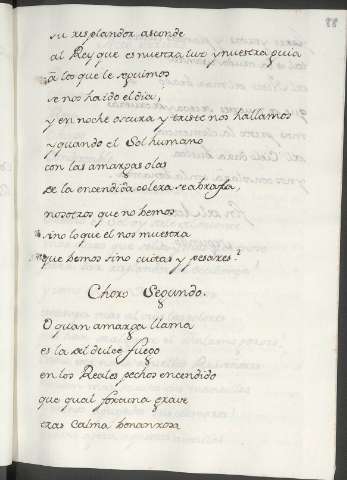 88
su resplandor asconde
al Rey que es nuestra luz y nuestra guia
â los que le seguimos
se nos ha ido el dia,
y en noche oscura y triste nos hallamos
y quando el Sol humano
con las amargas olas
de la encendida colera se abrassa,
nosotros que no vemos
sino lo que el nos muestra
que vemos sino cuitas y pesares?
Choro Segundo.
O quan amarga llama
es la del dulce fuego
en los Reales pechos encendido
que qual fortuna grave
tras calma bonanzosa